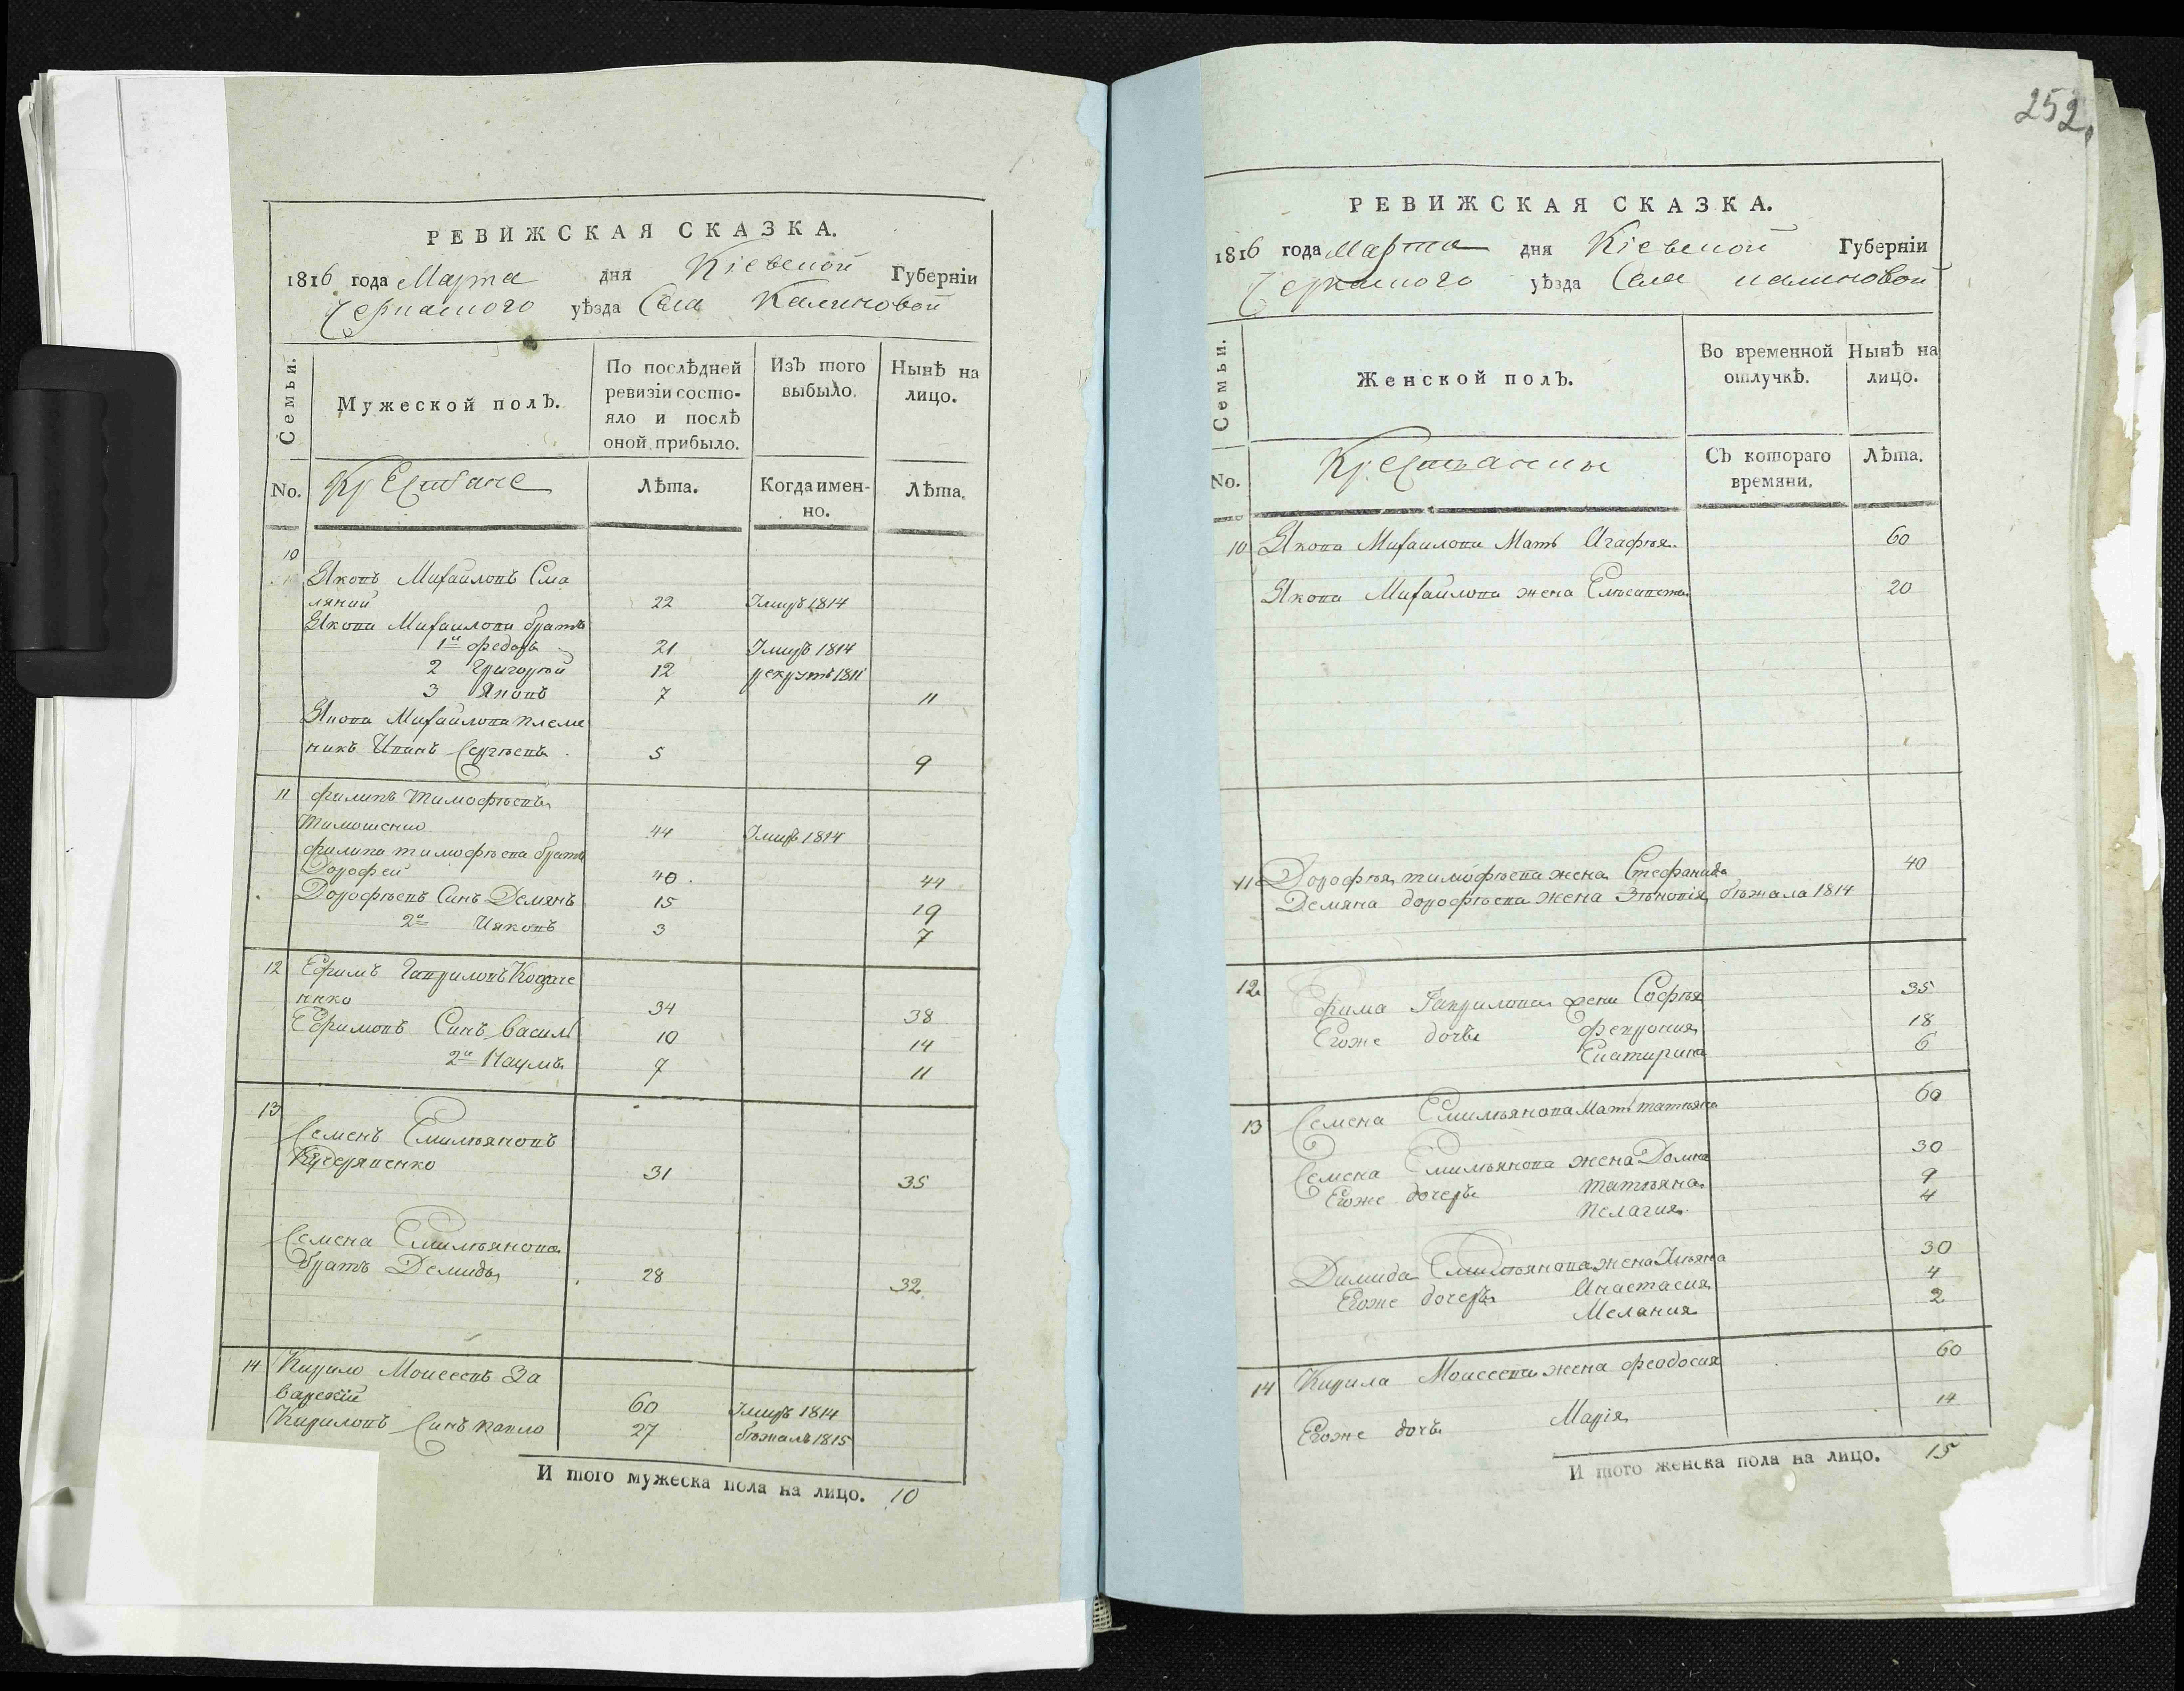 252.
РЕВИЖСКАЯ СКАЗКА.
1816 года Марта дня Кіевской Губерніи
Черкаского уѣзда Села Калиновой
Семьи.
Мужеской полЪ.
По послѣдней ревизіи состояло и послѣ оной прибыло.
ИзЪ того выбыло.
НынѢ на лицо.
No.
Крестьяне
Лѣта.
Когда именно.
Лѣта.
10
Яковъ Михайловъ Сма
ляний 22 Умиръ 1814
Якова Михайлова братъ
1й федоръ 21 Умиръ 1814
2 Григорий 12 рекрутъ 1811
3 Яковъ 7 11
Якова Михайлова племе
никъ Иванъ Сергѣевъ 5 9
11 филипъ тимофѣевъ
Тимошенко 44 Умиръ 1814
филипа тимофѣева братъ
Дорофей 40 44
Дорофѣевъ Синъ Демянъ 15 19
2й Ияковъ 3 7
12 Ефимъ Гавриловъ Козаче
нко 34 38
Ефимовъ Синъ василь 10 14
2й Наумъ 7 11
13
Семенъ Емильяновъ
Кучерявенко 31 35
Семена Емильянова
братъ Демидъ 28 32
14 Кирило Моисеевъ За
варский 60 Умиръ 1814
Кириловъ Синъ павло 27 бѣжалъ 1815
И того мужеска пола на лицо. 10
РЕВИЖСКАЯ СКАЗКА.
1816 года Марта дня Кіевской Губерніи
Черкаского уѣзда Села калиновой
Семьи.
Женской полЪ.
Во временной отлучкѢ.
НынѢ на лицо.
No.
Крестьянки
СЪ котораго времяни.
Лѣта.
10 Якова Михайлова Мать Агафья 60
Якова Михайлова жена Елисавета 20
11 Дорофея тимофѣева жена Стефанида 40
Демяна дорофѣева жена Зѣновія бѣжала 1814
12 Ефима Гаврилова жена Софья 35
Егоже дочь феврония 18
Екатирина 6
13 Семена Емильянова Мать татьяна 60
Семена Емильянова жена Домна 30
Егоже дочерь татьяна 9
пелагия 4
Димида Емильянова жена Ульяна 30
Егоже дочерь Анастасия 4
Мелания 2
14 Кирила Моисеева жена феодосия 60
Егоже дочь Марія 14
И того женска пола на лицо. 15